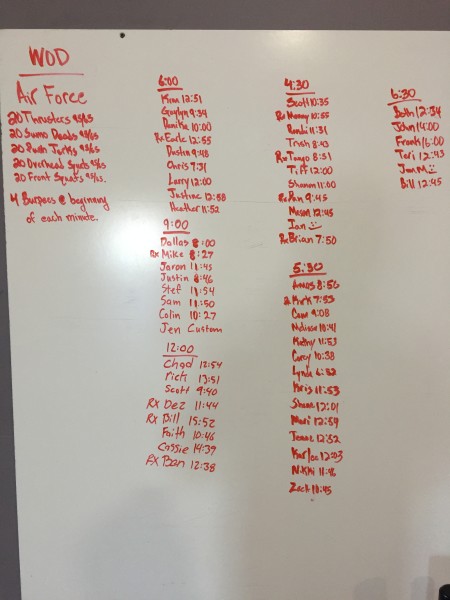 WOD
Air Force
20 Thrusters 95/65
20 Sumo Deads 95/65
20 Push Jerks 95/65
20 Overhead Squats 95/65
20 Front Squats 95/65
4 Burpees @ beginning
of each minute.
6:00
Kim 12:51
Gaylyn 9:34
Danika 10:00
Rx Earle 12:55
Dustin 9:48
Chris 7:31
Larry 12:00
Justine 12:58
Heather 11:52
9:00
Dallas 8:00
Rx Mike 8:27
Jaron 11:45
Justin 8:46
Stef 11:54
Sam 11:50
Colin 10:27
Jen Custom
12:00
Chad 12:54
Rick 13:51
Scott 9:40
RX Dez 11:44
RX Bill 15:52
Faith 10:46
Cassie 14:39
RX Ben 12:38
4:30
Scott 10:35
Rx Manny 10:55
Randi 11:31
Trish 8:43
Rx Tango 8:51
Tiff 12:00
Shannon 11:00
Rx Dan 9:45
Mason 12:45
Ian
Rx Brian 7:50
5:30
Amos 8:56
Kirk 7:55
Cam 9:08
Melissa 10:41
Kathy 11:53
Corey 10:38
Lynda
Kris 11:53
Shane 12:01
Mari 12:59
Jenna 12:32
Karlee 12:03
Nikki 11:46
Zack 10:45
6:30
Beth 12:34
John 14:00
Frank 16:00
Teri 12:43
Bill 12:45